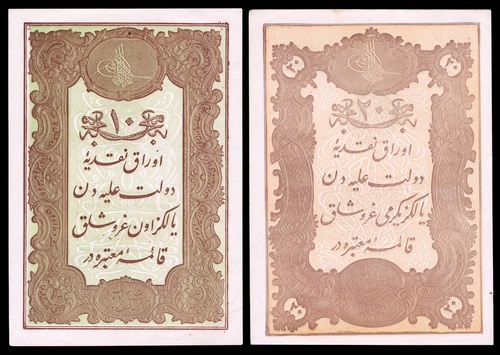 ١٠
اوراق نقدیهٔ
دولت علیه دن
یالکز اون غروشلق
قائمهٔ معتبره در
٢٠
٢٠
٢٠
اوراق نقدیهٔ
دولت علیه دن
یالکز یکرمی غروشلق
قائمهٔ معتبره در
٢٠
٢٠